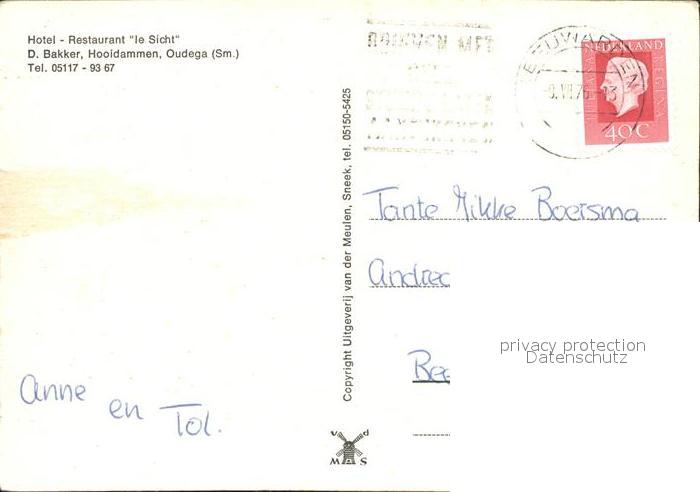 Hotel - Restaurant "Ie Sicht"
D. Bakker, Hooidammen, Oudega (Sm.)
Tel. 05117 - 93 67
Copyright Uitgeverij van der Meulen, Sneek, tel. 05150-5425
LEEUWARDEN
NEDERLAND
JULIANA REGINA
40 C
Tante Hikke Boersma
privacy protection
Datenschutz
Anne
en
Tol.
v d
M S